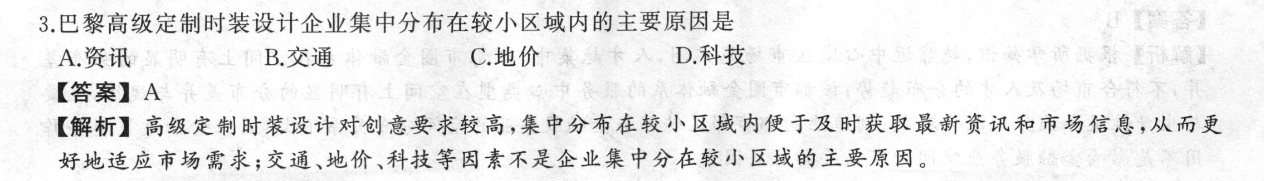 3.巴黎高级定制时装设计企业集中分布在较小区域内的主要原因是
A.资讯 B.交通 C.地价 D.科技
【答案】A
【解析】高级定制时装设计对创意要求较高,集中分布在较小区域内便于及时获取最新资讯和市场信息,从而更
好地适应市场需求;交通、地价、科技等因素不是企业集中分在较小区域的主要原因。